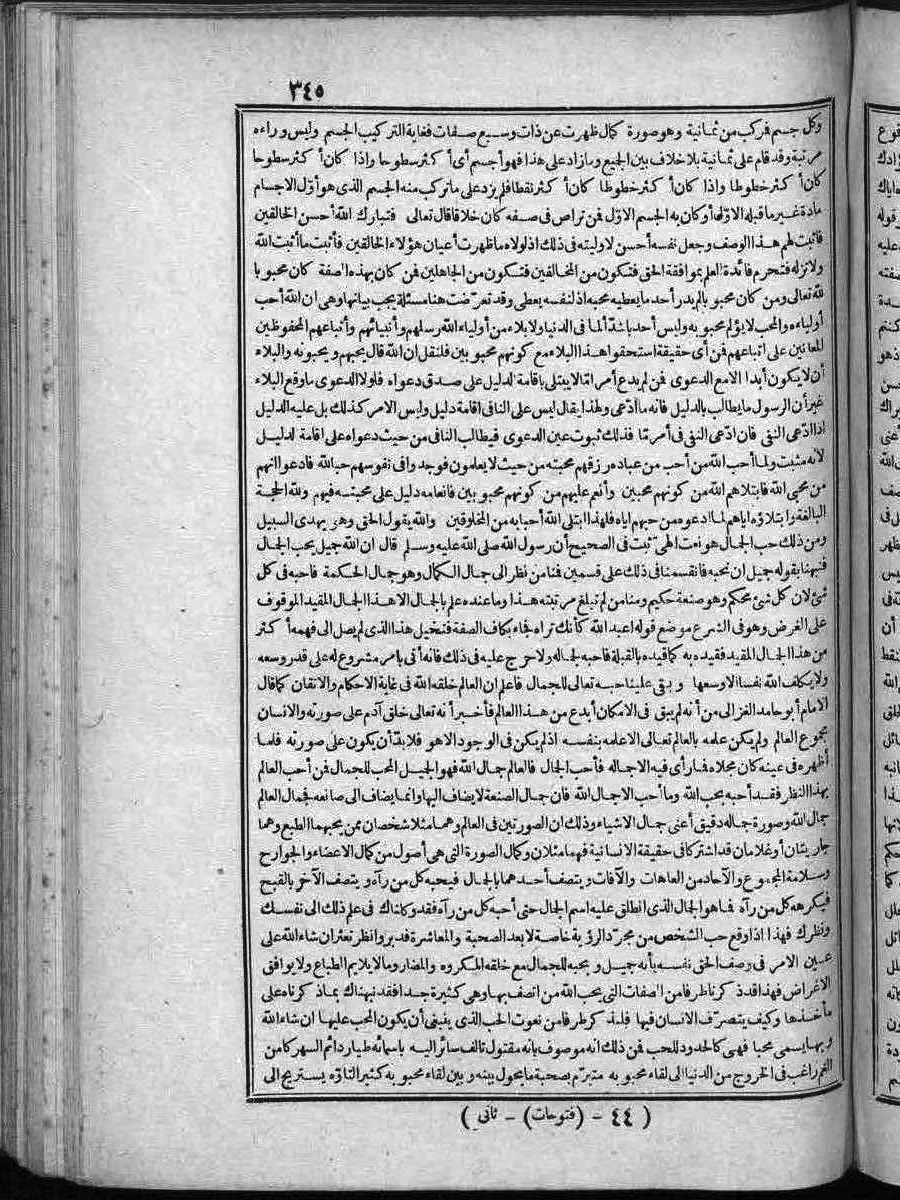 ٣٤٥
وكل جسم فركب من ثمانية وهو صورة كمال ظهرت عن ذات وسبع صفات فغاية التركيب الجسم وليس وراءه
مرتبة وقد قام على ثمانية بلا خلاف بين الجميع وما زاد على هذا فهو أجسم أى أكثر سطوحا واذا كان أكثر سطوحا
كان أكثر خطوطا واذا كان أكثر خطوطا كان أكثر نقطا فلم يزد على ما تركب منه الجسم الذى هو أوّل الاجسام
مادة غير ما قبله الاوّل أو كان به الجسم الاوّل فمن تراص فى صفه كان خلاقا قال تعالى فتبارك الله أحسن الخالقين
فأثبت لهم هذا الوصف وجعل نفسه أحسن لاوليته فى ذلك اذ لولاه ما ظهرت أعيان هؤلاء الخالقين فأثبت ما أثبت الله
ولا تزله فتحرم فائدة العلم بموافقة الحق فتكون من المخالفين فتكون من الجاهلين فمن كان بهذه الصفة كان محبوبا
لله تعالى ومن كان محبوبا لم يدر أحد ما يعطيه محبه اذ لنفسه يعطى وقد تعرّضت هنا مسئلة يجب بيانها وهى ان الله أحب
أولياءه والمحب لا يؤلم محبوبه وليس أحد باشدّ ألما فى الدنيا ولا بلاء من أولياء الله رسلهم وأنبيائهم وأتباعهم المحفوظين
المعانين على اتباعهم فمن أى حقيقة استحقوا هذا البلاء مع كونهم محبوبين فلنقل ان الله قال يحبهم ويحبونه والبلاء
أن لا يكون أبدا الا مع الدعوى فمن لم يدع أمر امّا لا يبتلى باقامة الدليل على صدق دعواه فلولا الدعوى ما وقع البلاء
غير أن الرسول ما يطالب بالدليل فانه ما ادّعى ولهذا يقال ليس على النافى اقامة دليل وليس الامر كذلك بل عليه الدليل
اذا ادّعى النفى فان ادّعى النفى فى أمر مّا فذلك ثبوت عين الدعوى فيطالب النافى من حيث دعواه على اقامة الدليل
لانه مثبت ولما أحب الله من أحب من عباده رزقهم محبته من حيث لا يعلمون فوجدوا فى نفوسهم حبا لله فادعوا انهم
من محبى الله فابتلاهم الله من كونهم محبين وأنعم عليهم من كونهم محبوبين فانعامه دليل على محبته فيهم ولله الحجة
البالغة وابتلاؤه اياهم لما ادعوه من حبهم اياه فلهذا ابتلى الله أحبابه من المخلوقين والله يقول الحق وهو يهدى السبيل
ومن ذلك حب الجمال هو نعت الهىّ ثبت فى الصحيح أن رسول الله صلى الله عليه وسلم قال ان الله جميل يحب الجمال
فنبهنا بقوله جميل ان نحبه فانقسمنا فى ذلك على قسمين فمنا من نظر الى جمال الكمال وهو جمال الحكمة فاحبه فى كل
شئ لان كل شئ محكم وهو صنعة حكيم ومنا من لم تبلغ مرتبته هذا وما عنده علم بالجمال الا هذا الجمال المقيد الموقوف
على الغرض وهو فى الشرع موضع قوله اعبد الله كأنك تراه فجاء بكاف الصفة فتخيل هذا الذى لم يصل الى فهمه أكثر
من هذا الجمال المقيد فقيده به كما قيده بالقبلة فاحبه لجماله ولا حرج عليه فى ذلك فانه أتى بامر مشروع له على قدر وسعه
ولا يكلف الله نفسا الا وسعها وبقى علينا حبه تعالى للجمال فاعلم ان العالم خلقه الله فى غاية الاحكام والاتقان كما قال
الامام أبو حامد الغزالى من أنه لم يبق فى الامكان أبدع من هذا العالم فأخبر أنه تعالى خلق آدم على صورته والانسان
مجموع العالم ولم يكن علمه بالعالم تعالى الا علمه بنفسه اذ لم يكن فى الوجود الا هو فلا بدّ أن يكون على صورته فلما
أظهره فى عينه كان مجلاه فما رأى فيه الا جماله فأحب الجمال فالعالم جمال الله فهو الجميل المحب للجمال فمن أحب العالم
بهذا النظر فقد أحبه بحب الله وما أحب الا جمال الله فان جمال الصنعة لا يضاف اليها وانما يضاف الى صانعه فجمال العالم
جمال الله وصورة جماله دقيق أعنى جمال الاشياء وذلك ان الصورتين فى العالم وهما مثلا شخصان ممن يحبهما الطبع وهما
جاريتان أو غلامان قد اشتركا فى حقيقة الانسانية فهما مثلان وكمال الصورة التى هى أصول من كمال الاعضاء والجوارح
وسلامة المجموع والآحاد من العاهات والآفات ويتصف أحدهما بالجمال فيحبه كل من رآه ويتصف الآخر بالقبح
فيكرهه كل من رآه فما هو الجمال الذى انطلق عليه اسم الجمال حتى أحبه كل من رآه فقد وكلناك فى علم ذلك الى نفسك
ونظرك فهذا اذا وقع حب الشخص من مجرّد الرؤية خاصة لا بعد الصحبة والمعاشرة فدبر وانظر تعثر ان شاء الله على
عين الامر فى وصف الحق نفسه بأنه جميل وبحبه للجمال مع خلقه المكروه والمضار وما لا يلايم الطباع ولا يوافق
الاغراض فهذا قد ذكرنا طرفا من الصفات التى يحب الله من اتصف بها وهى كثيرة جدا فقد نبهناك بما ذكرناه على
مأخذها وكيف يتصرّف الانسان فيها فلنذكر طرفا من نعوت الحب الذى ينبغى أن يكون المحب عليها ان شاء الله
وبها يسمى محبا فهى كالحدود للحب فمن ذلك انه موصوف بانه مقتول تالف سائر اليه باسمائه طيار دائم السهر كامن
الغم راغب فى الخروج من الدنيا الى لقاء محبوبه متبرّم بصحبة ما يحول بينه وبين لقاء محبوبه كثير التأوّه يستريح الى
( ٤٤ - (فتوحات) - ثانى )